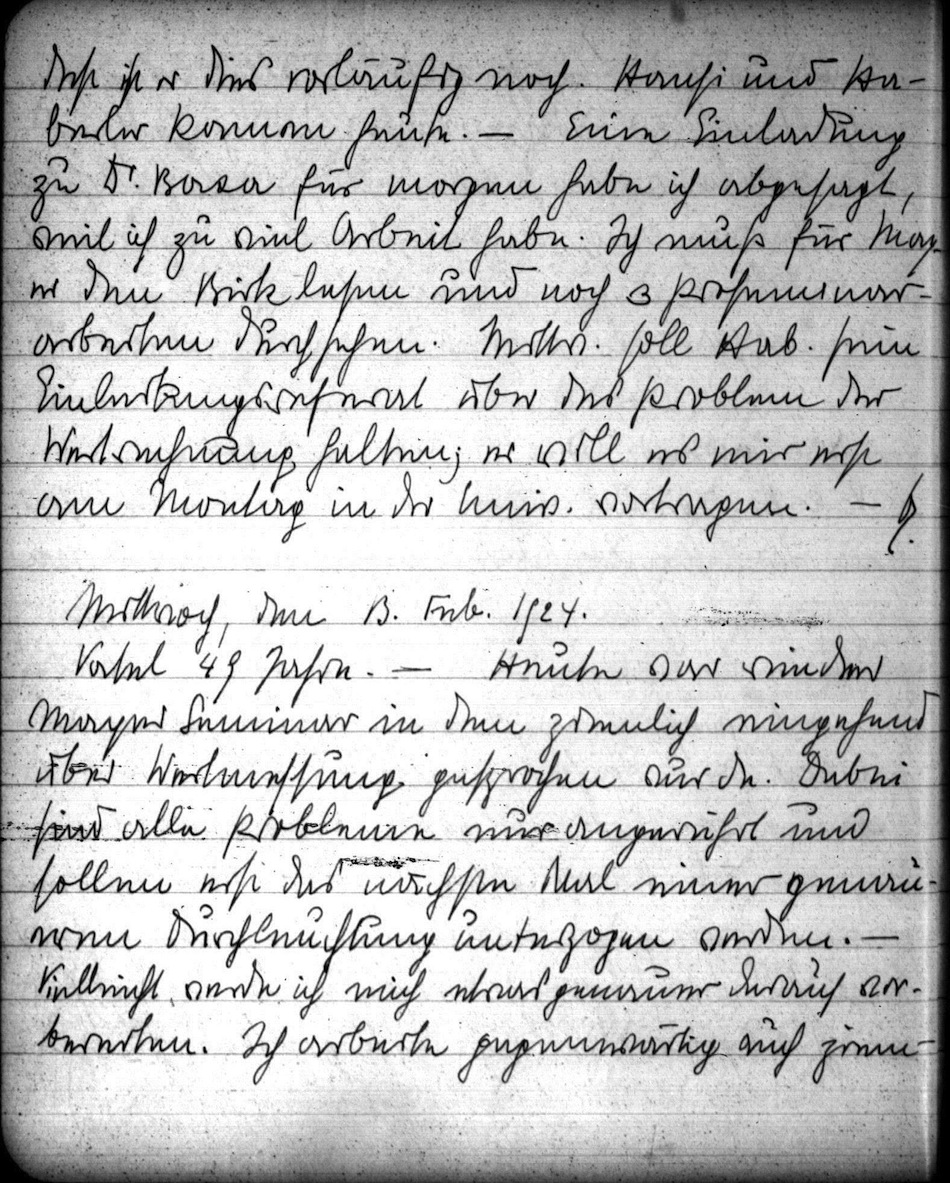 doch ist er dies vorläufig noch. Hansi und Ha-
berler kommen heute. — Eine Einladung
zu Dr. für morgen habe ich abgesagt,
weil ich zu viel Arbeit habe. Ich muß für May-
er den lesen und noch 3 Proseminar-
arbeiten durchsehen. Mittw. soll Hab. sein
Einleitungsreferat über das Problem der
Wertrechnung halten; er will es mir erst
am Montag in der Univ. vortragen. —
Mittwoch, den 13. Feb. 1924.
Vaterl 49 Jahre. — Heute war wieder
Mayer Seminar in dem ziemlich eingehend
über Wertmessung gesprochen wurde. Dabei
sind alle Probleme nur angerührt und
sollen erst das nächste Mal einer genau-
eren Durchleuchtung unterzogen werden. —
Vielleicht werde ich mich etwas genauer darauf vor-
bereiten. Ich arbeite gegenwärtig auch ziem-